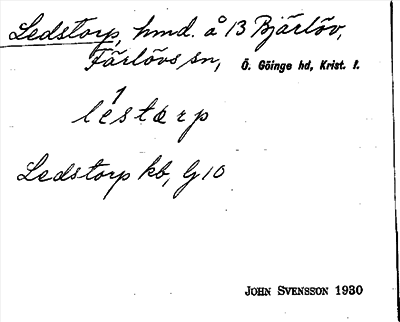 Ledstorp, hmd. å 13 Bjärlöv,
Färlövs sn, Ö. Göinge hd, Krist. l.
lèstærp
Ledstorp kb, G 10
JOHN SVENSSON 1930